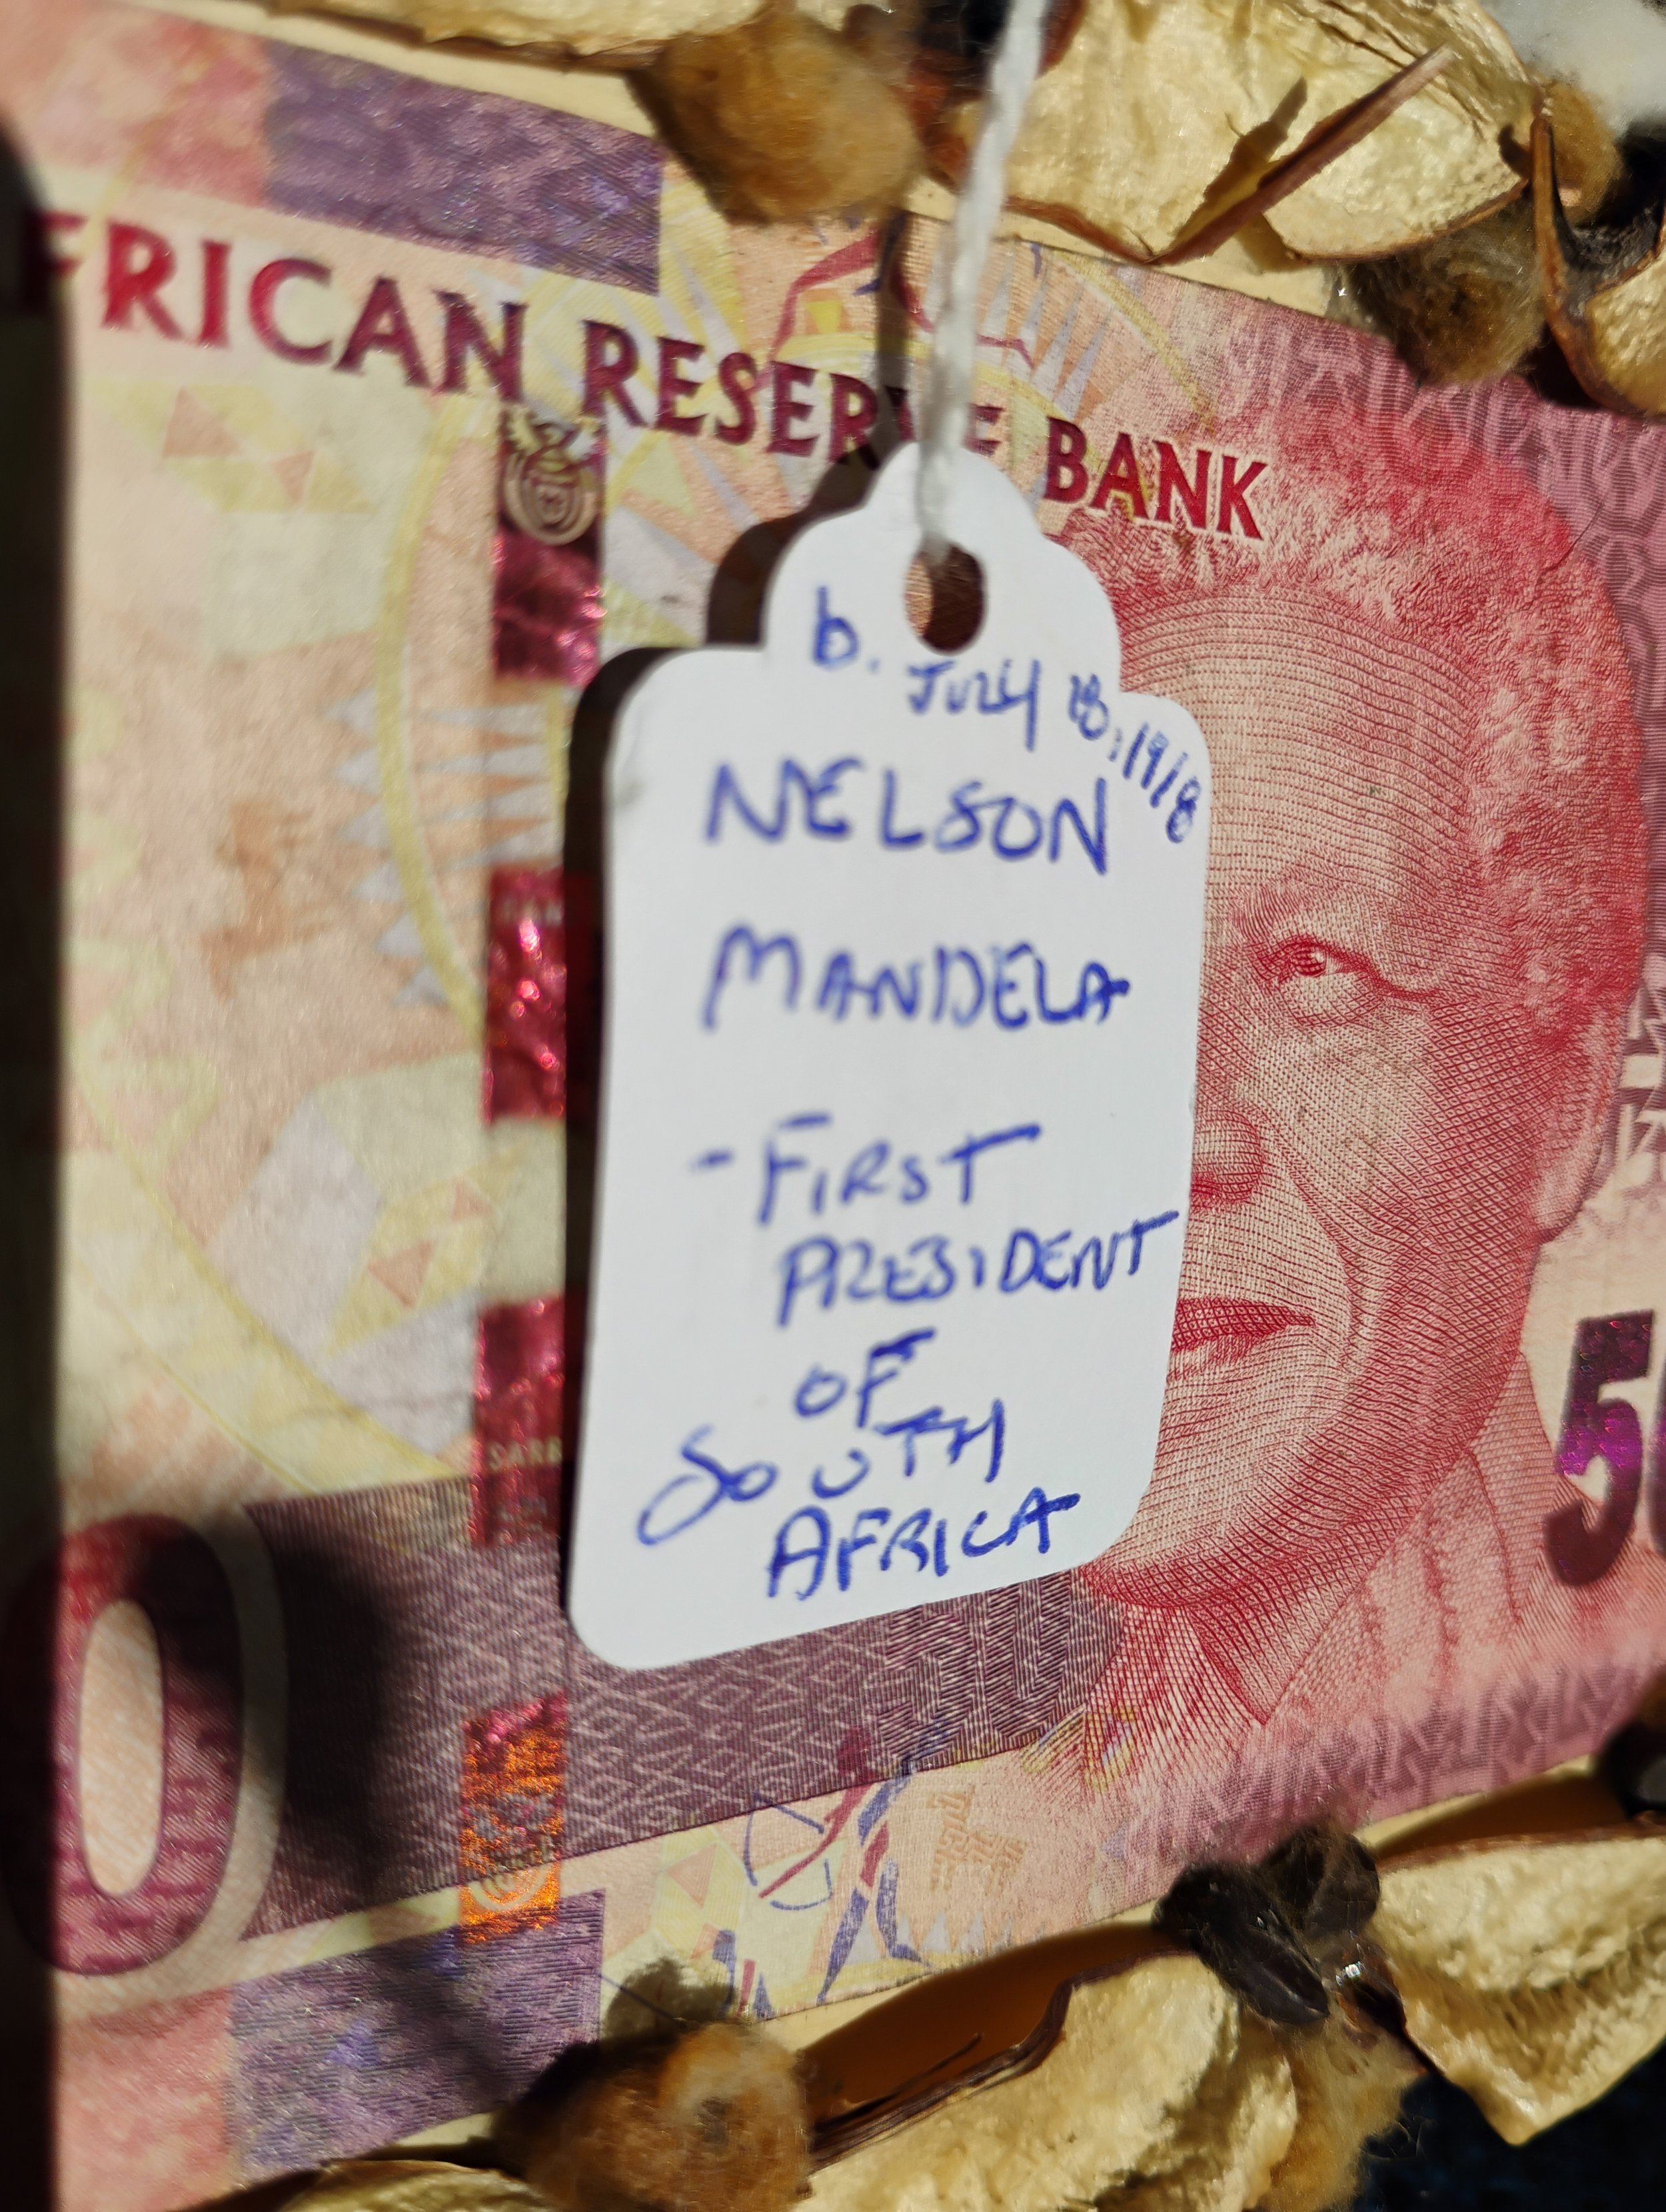 FRICAN RESERVE BANK
b. JULY 18, 1918
NELSON
MANDELA
- FIRST
PRESIDENT
OF
SOUTH
AFRICA
50
SARB
0
50